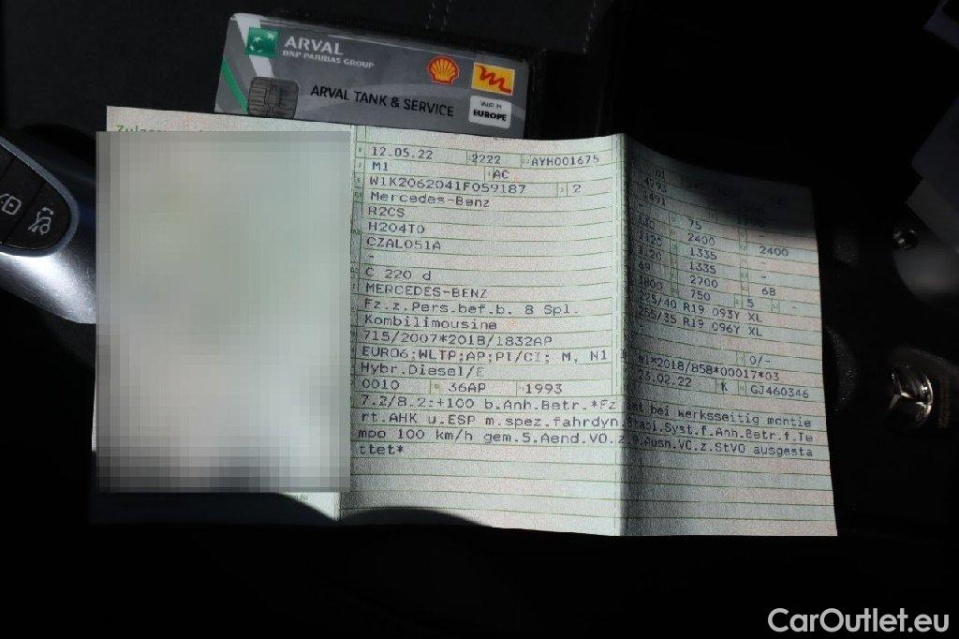 ARVAL
BNP PARIBAS GROUP
ARVAL TANK & SERVICE
EUROPE
12.05.22 2222 AYH001675
M1 AC
W1K2062041F059187 2
Mercedes-Benz
R2CS
H204T0
CZAL051A
-
C 220 d
MERCEDES-BENZ
Fz.z.Pers.bef.b. 8 Spl.
Kombilimousine
715/2007*2018/1832AP
EURO6;WLTP;AP;PI/CI; M, N1 I
Hybr.Diesel/E
0010 36AP 1993
75
2400 2400
1335
1335 -
2700 68
1800 750 5 -
225/40 R19 093Y XL
255/35 R19 096Y XL
0/-
*2018/858*00017*03
.02.22 K GJ460346
7.2/8.2:+100 b.Anh.Betr.*Fz ist bei werksseitig montie
rt.AHK u.ESP m.spez.fahrdyn.Stabi.Syst.f.Anh.Betr.f.Te
mpo 100 km/h gem.5.Aend.VO.z.9.Ausn.VO.z.StVO ausgesta
ttet*
CarOutlet.eu